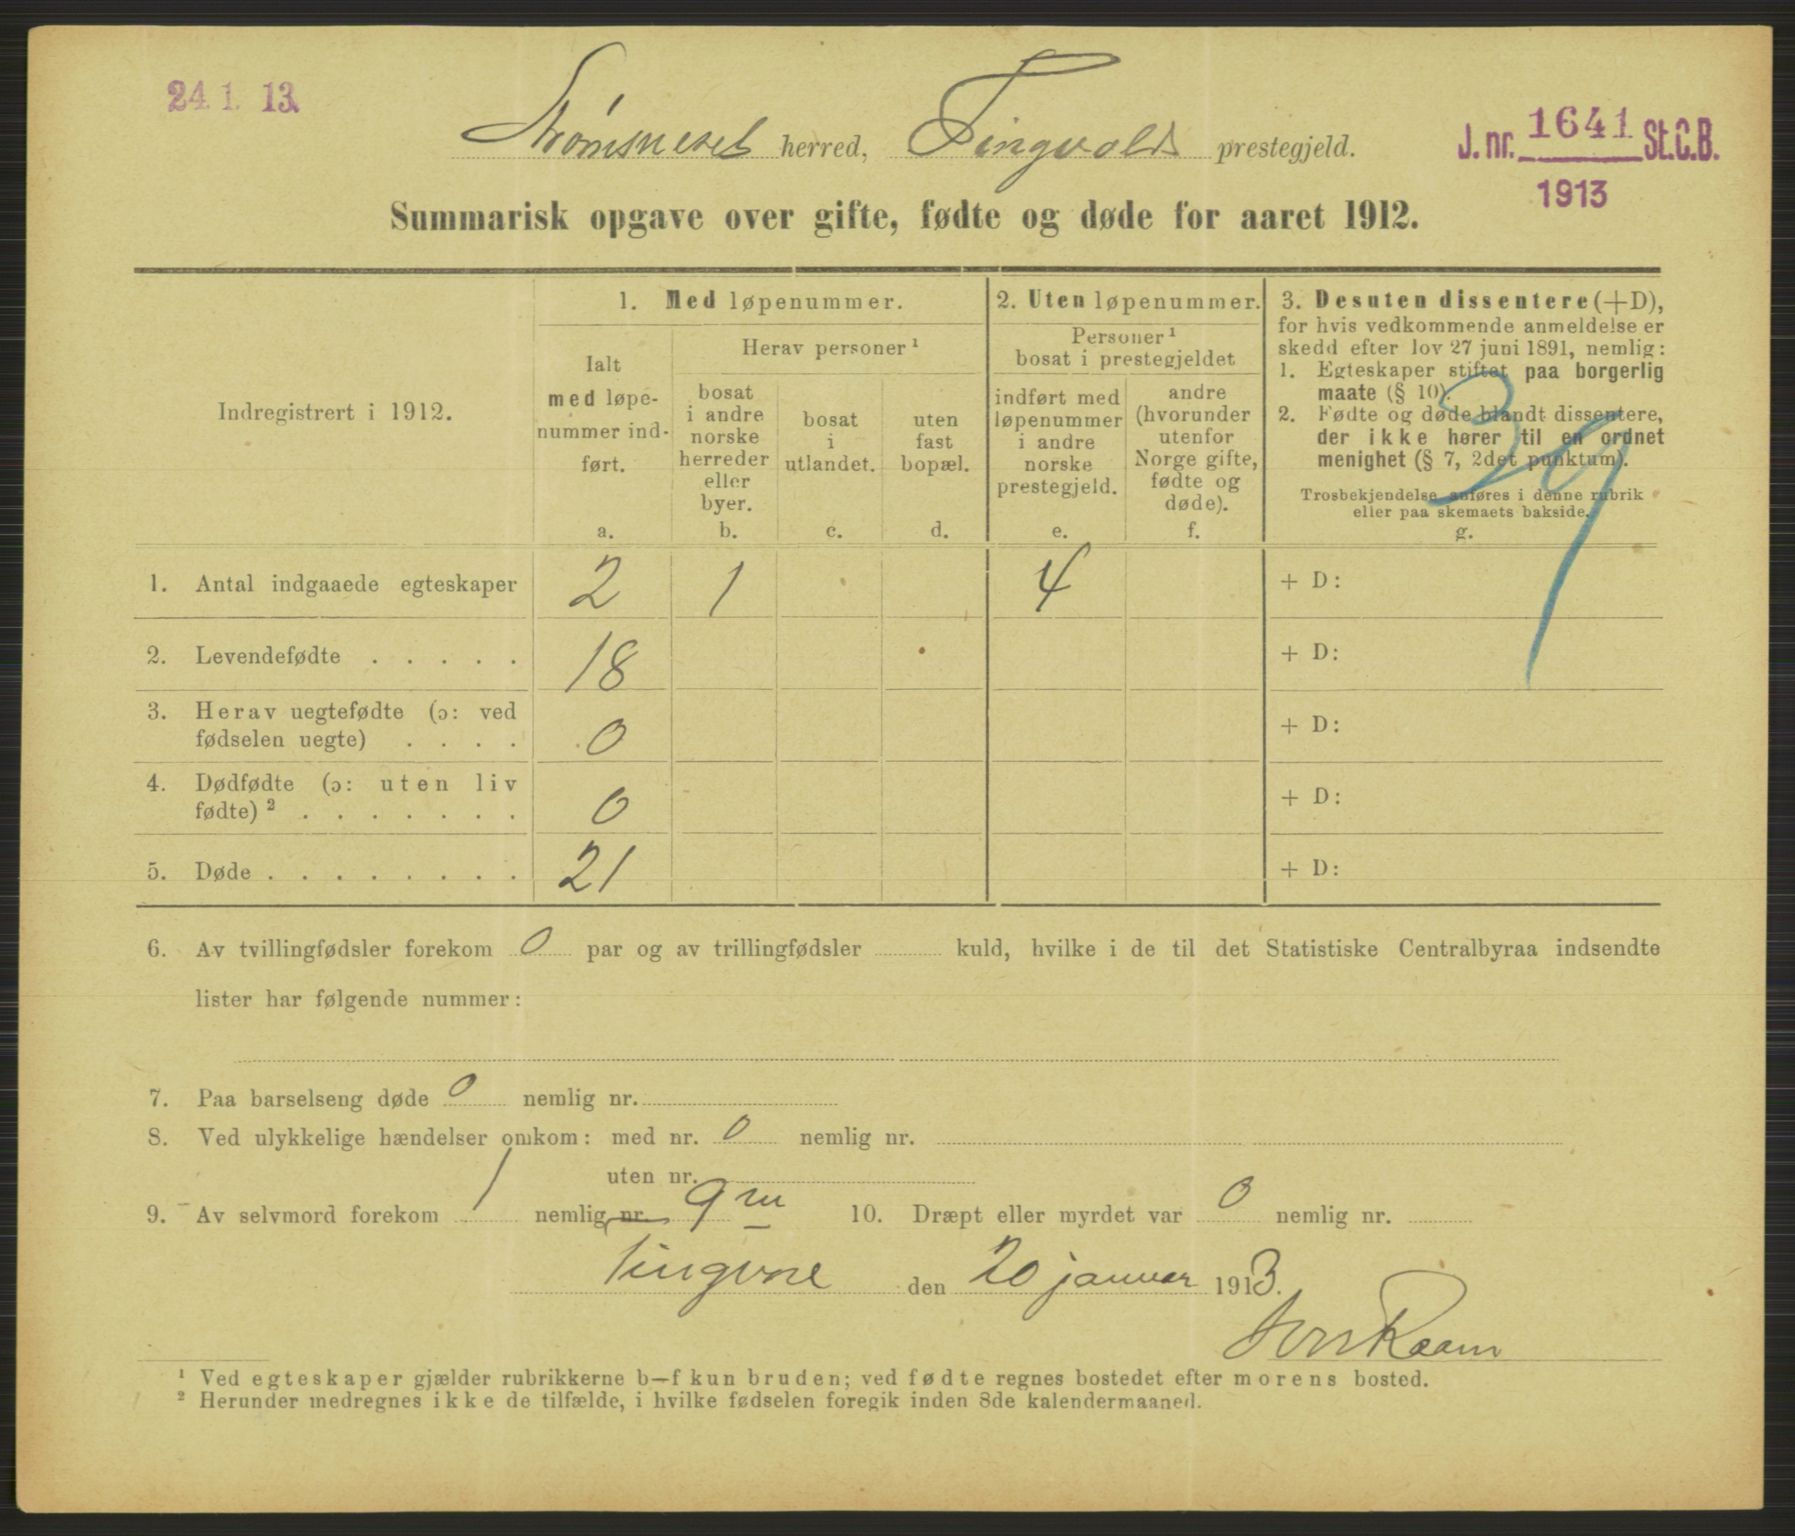 24. 1. 13.
Strømsneset herred, Tingvolds prestegjeld.
J. nr. 1641 St.C.B.
1913
Summarisk opgave over gifte, fødte og døde for aaret 1912.
Indregistrert i 1912.
1. Med løpenummer.
Ialt
med løpe-
nummer ind-
ført.
a.
Herav personer ¹
bosat
i andre
norske
herreder
eller
byer.
b.
bosat
i
utlandet.
c.
uten
fast
bopæl.
d.
2. Uten løpenummer.
Personer ¹
bosat i prestegjeldet
indført med
løpenummer
i andre
norske
prestegjeld.
e.
andre
(hvorunder
utenfor
Norge gifte,
fødte og
døde).
f.
3. Desuten dissentere (+D),
for hvis vedkommende anmeldelse er
skedd efter lov 27 juni 1891, nemlig:
1. Egteskaper stiftet paa borgerlig
maate (§ 10).
2. Fødte og døde blandt dissentere,
der ikke hører til en ordnet
menighet (§ 7, 2det punktum).
Trosbekjendelse anføres i denne rubrik
eller paa skemaets bakside.
g.
39
1. Antal indgaaede egteskaper 2 1 4 + D:
2. Levendefødte . . . . . 18 + D:
3. Herav uegtefødte (ɔ: ved
fødselen uegte) . . . . 0 + D:
4. Dødfødte (ɔ: uten liv
fødte) ² . . . . . . . 0 + D:
5. Døde . . . . . . . . 21 + D:
6. Av tvillingfødsler forekom 0 par og av trillingfødsler kuld, hvilke i de til det Statistiske Centralbyraa indsendte
lister har følgende nummer:
7. Paa barselseng døde 0 nemlig nr.
8. Ved ulykkelige hændelser omkom: med nr. 0 nemlig nr.
uten nr.
9. Av selvmord forekom 1 nemlig nr. 9 m 10. Dræpt eller myrdet var 0 nemlig nr.
Tingvol den 20 januar 1913.
¹ Ved egteskaper gjælder rubrikkerne b—f kun bruden; ved fødte regnes bostedet efter morens bosted.
² Herunder medregnes ikke de tilfælde, i hvilke fødselen foregik inden 8de kalendermaaned.